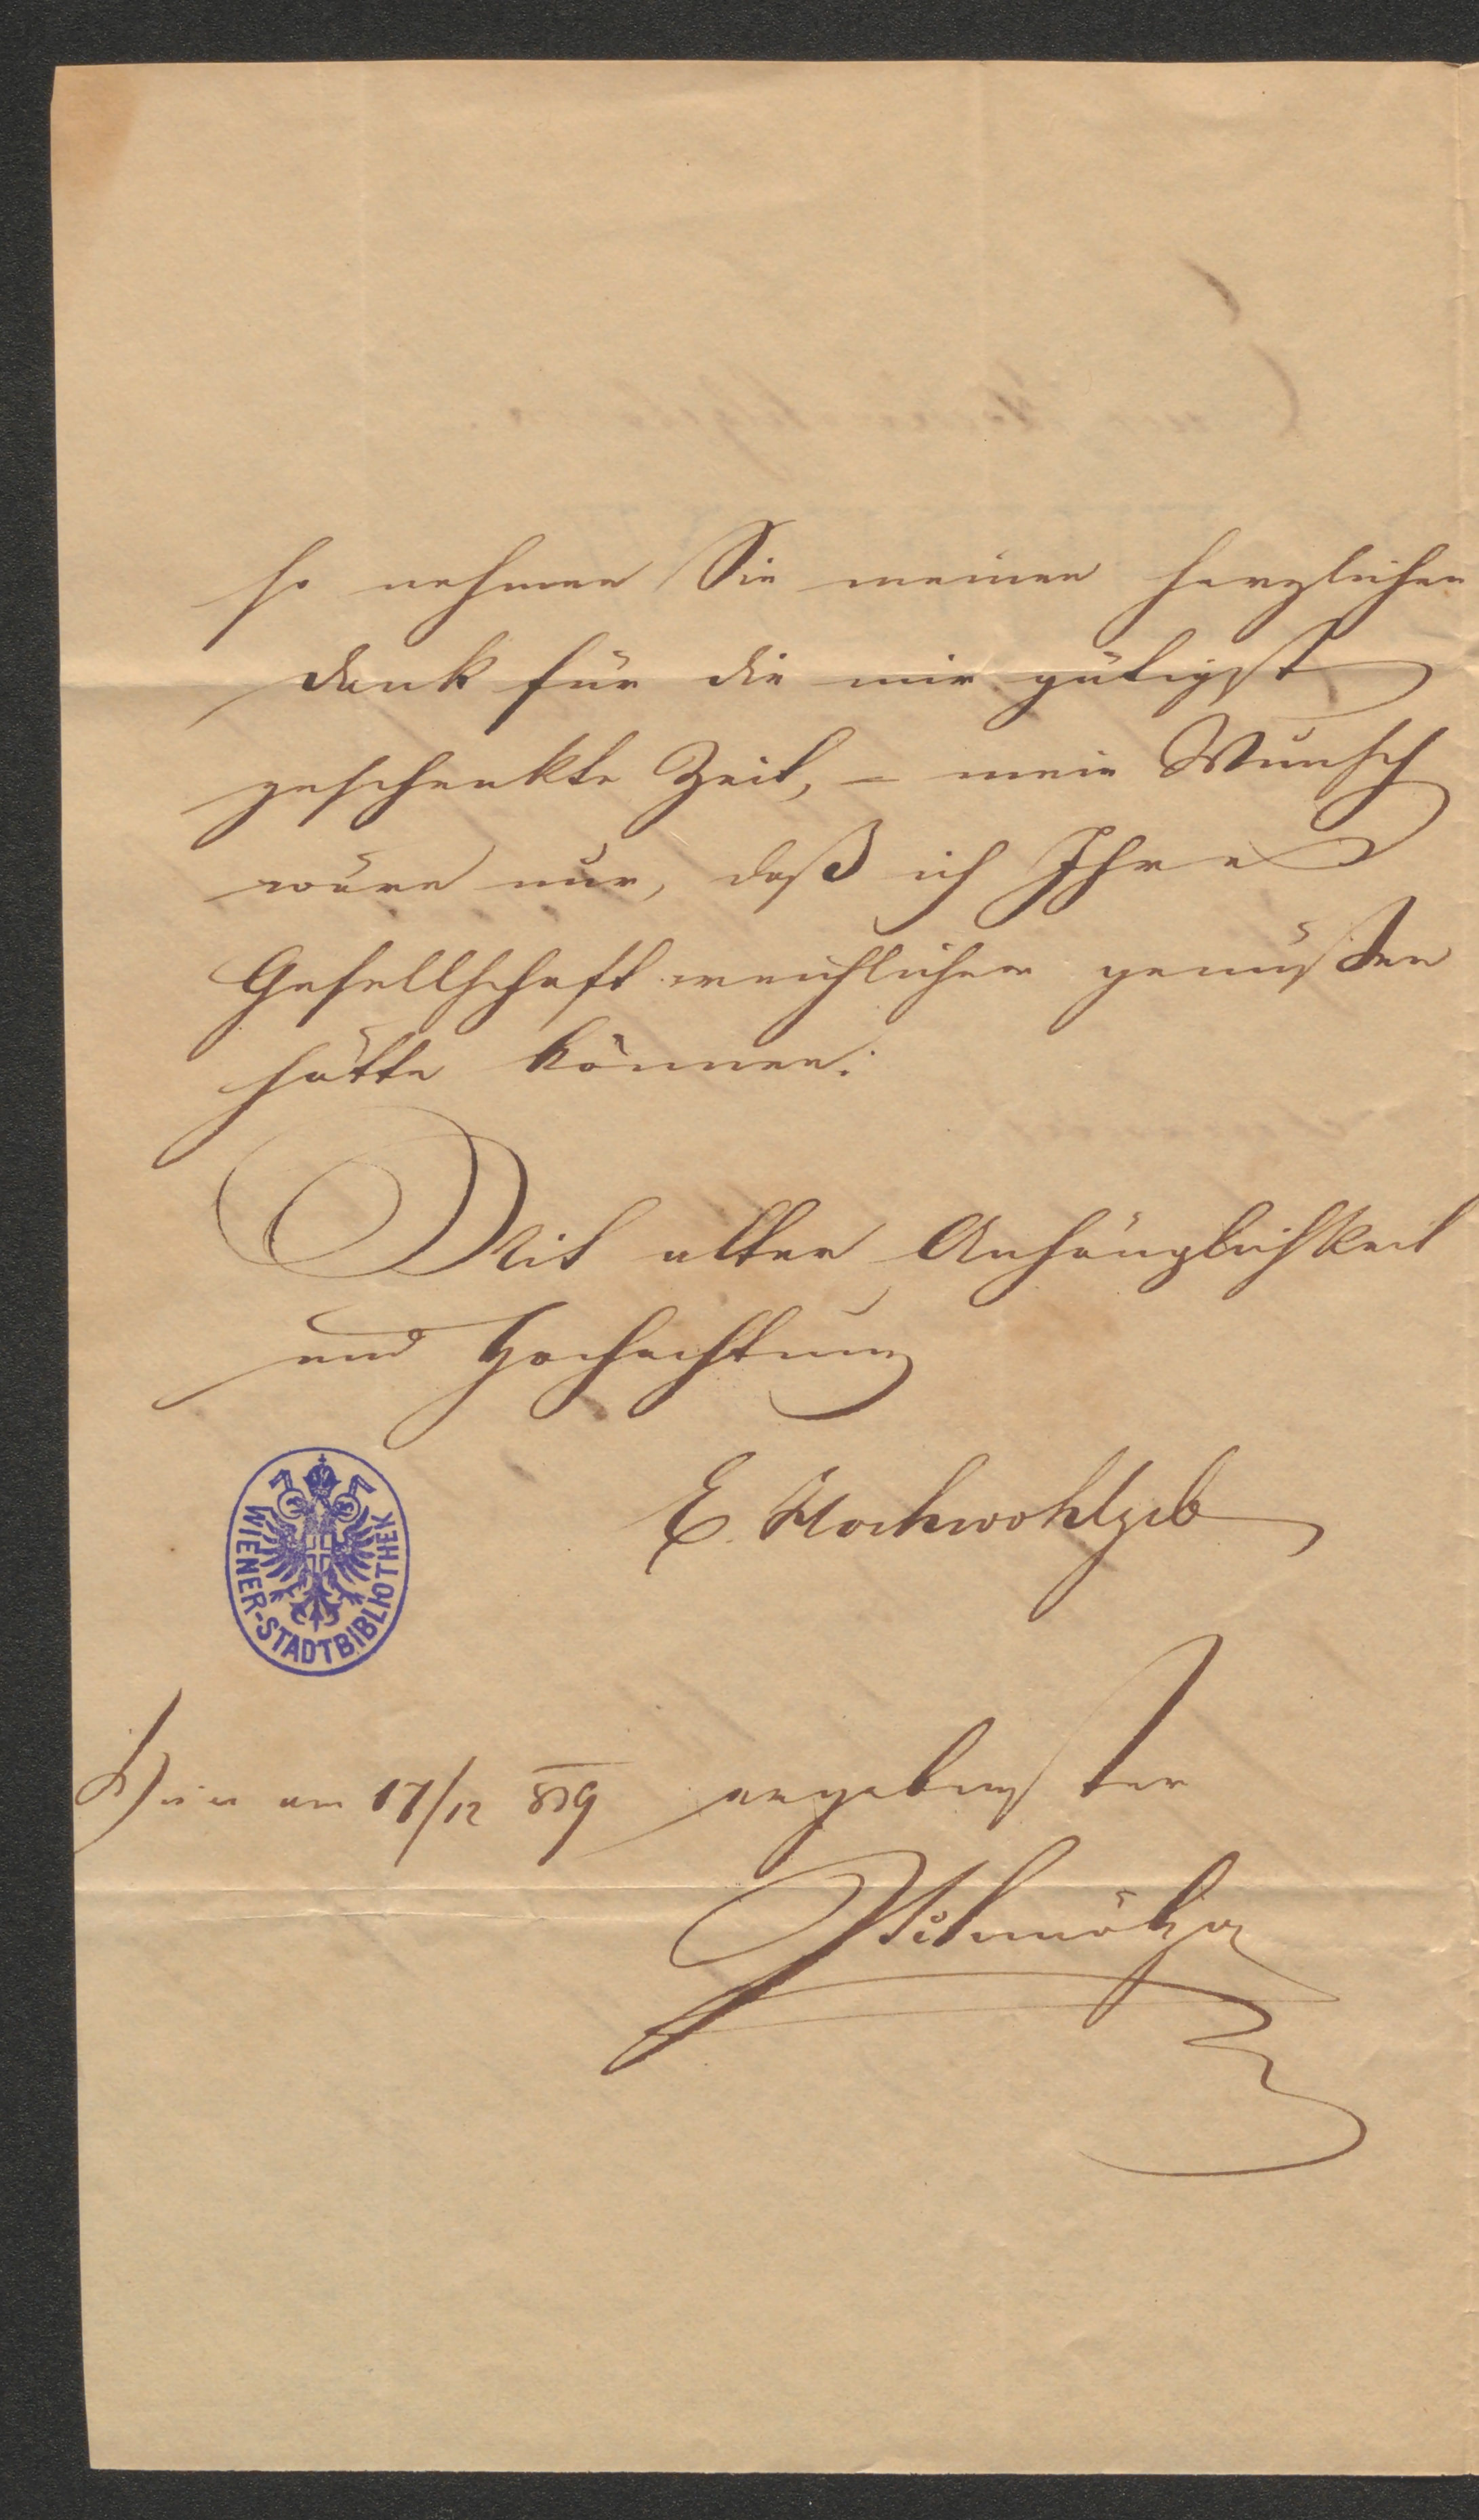 so nehmen Sie meinen herzlichen
Dank für die mir gütigst
geschenkte Zeit, – mein Wunsch
wäre nur, daß ich Ihre
Gesellschaft reichlicher
hätte können.
Mit alter Anhänglichkeit
und Hochachtung
E. Hochwohlgeb
WIENER-STADTBIBLIOTHEK
Wien am 17/12 859 ergebenster